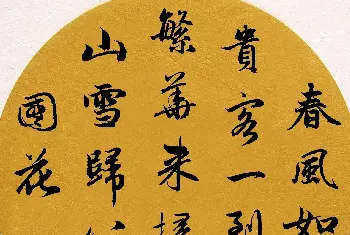 春風如
貴客一到
繁華来掃
山雪歸
國花